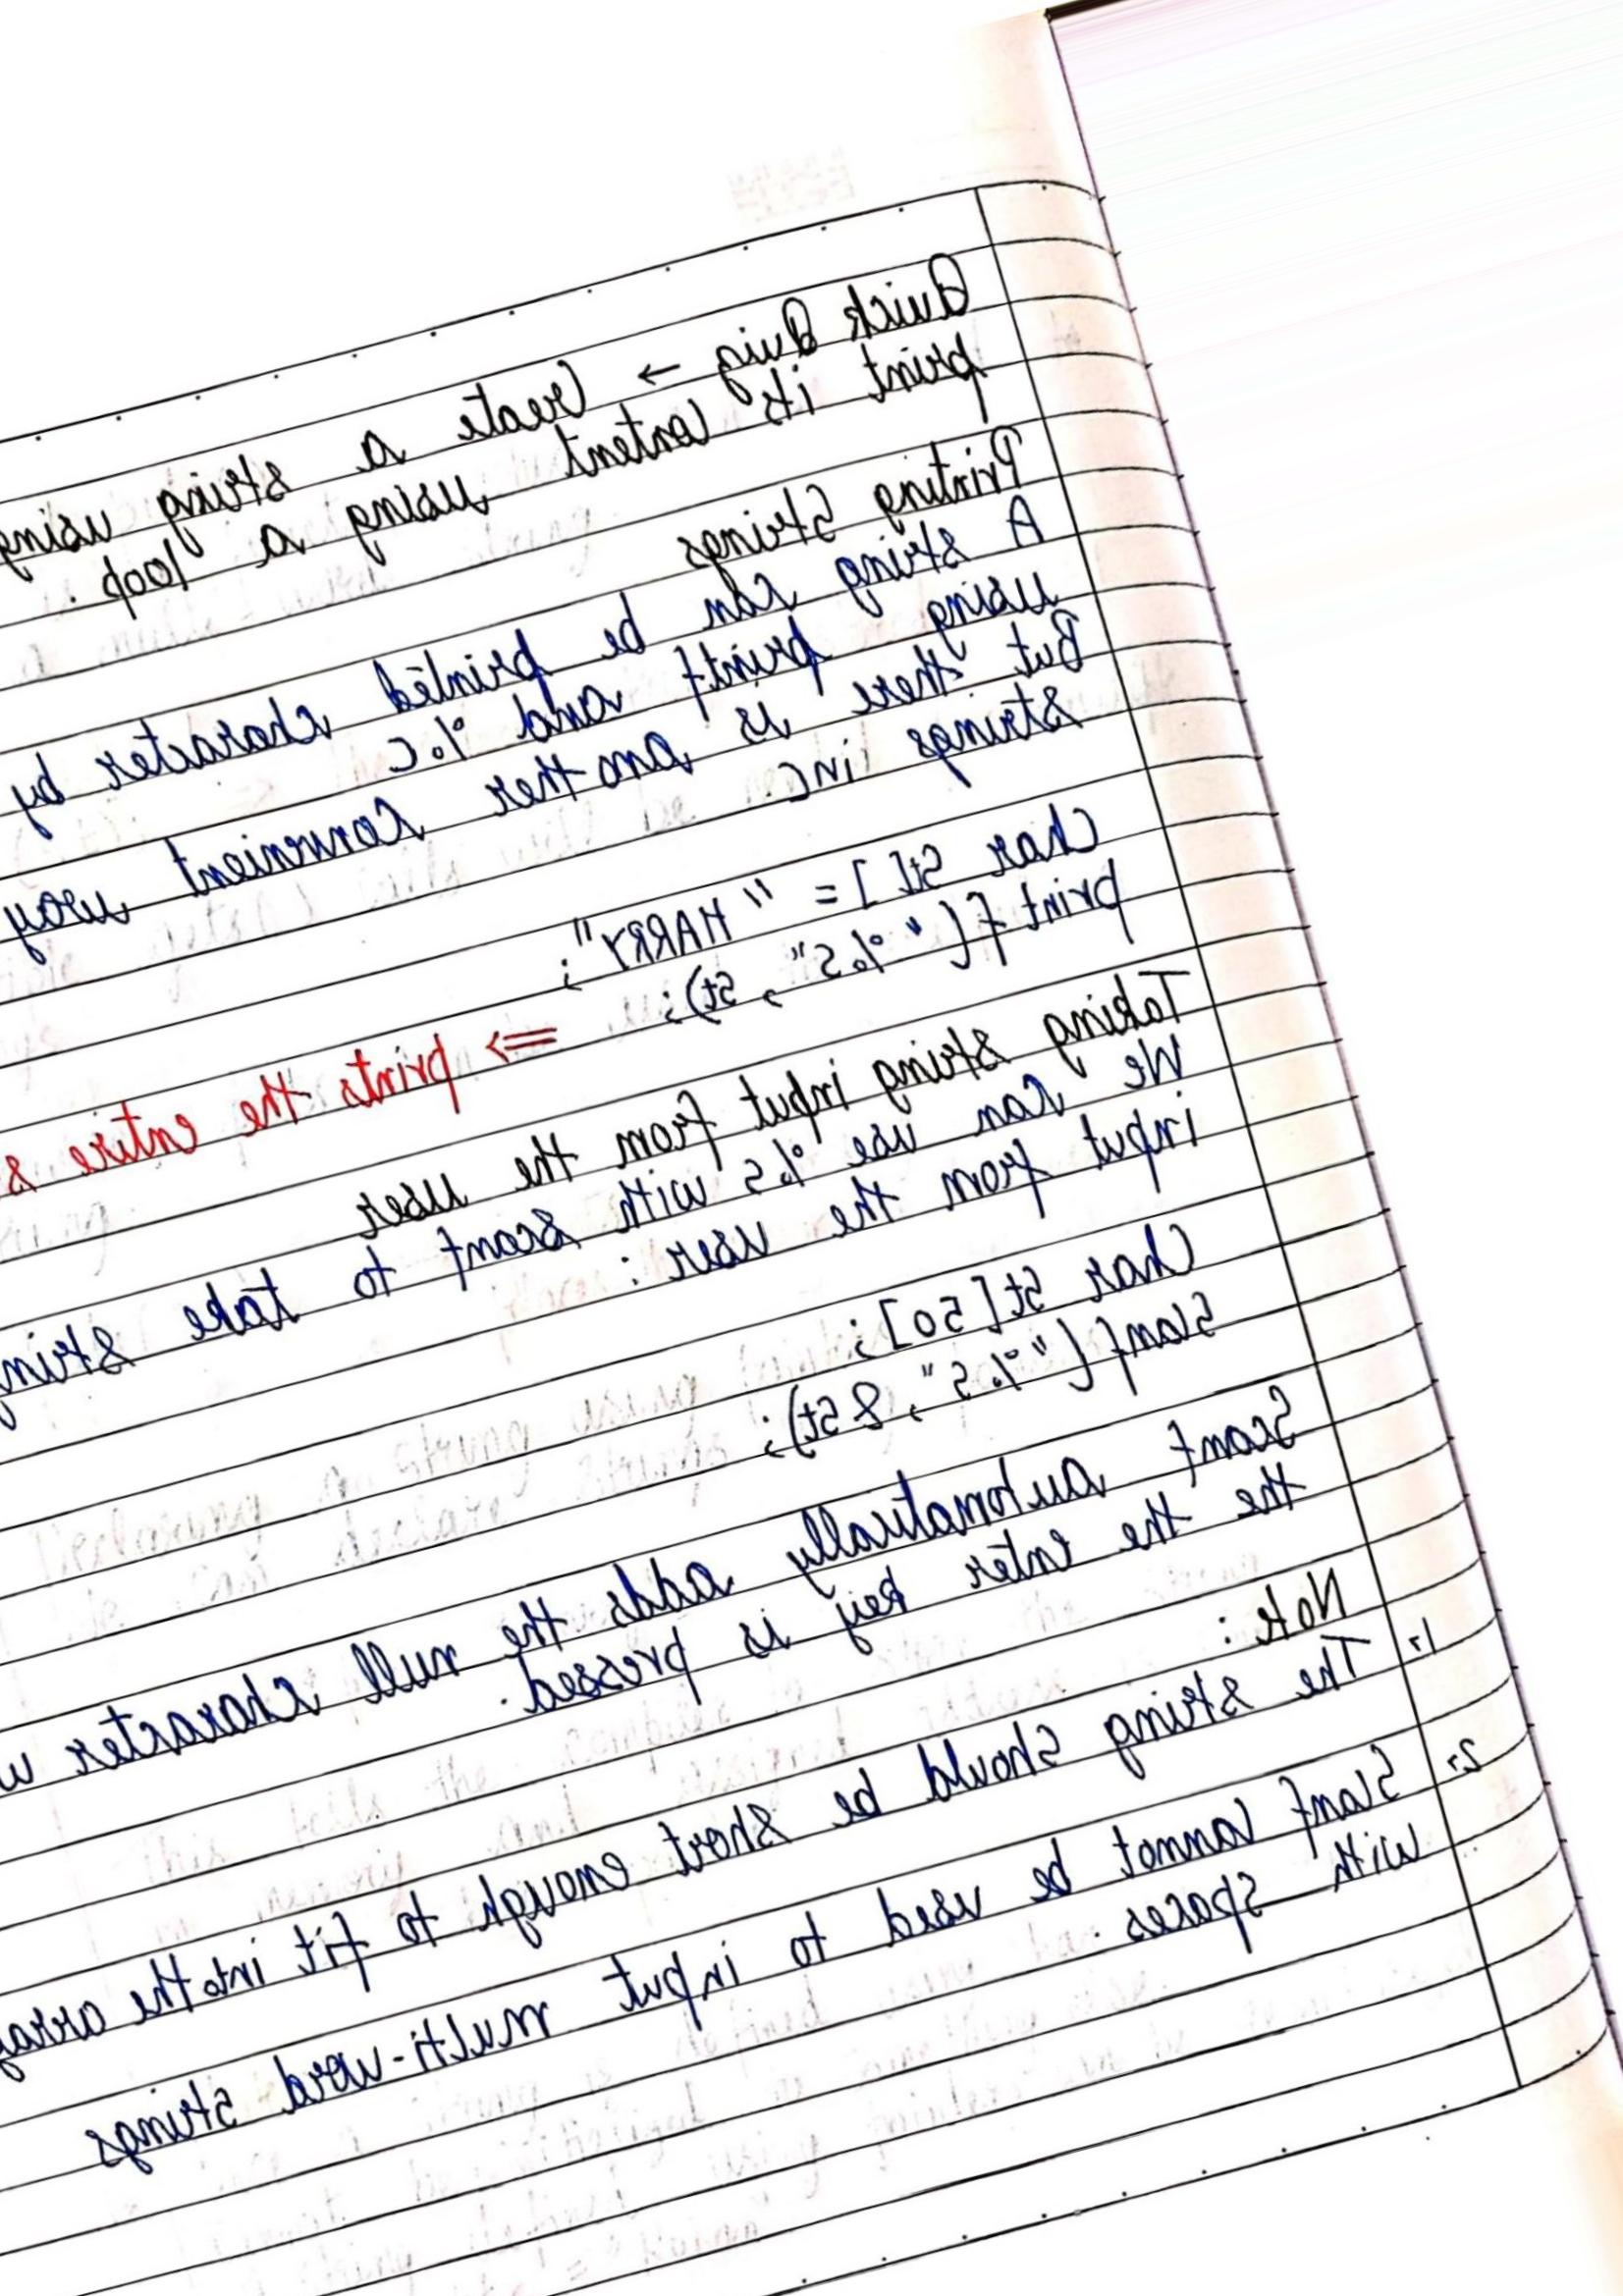 Quick Quiz → Create a string using
print its content using a loop.
Printing Strings
A string can be printed character by
using printf and %c
But there is another convenient way
strings in C
char st[] = "HARRY";
printf("%s", st); => prints the entire s
Taking string input from the user
We can use %s with scanf to take strin
input from the user :
char st[50];
Scanf("%s", &st);
Scanf automatically adds the null character w
the the enter key is pressed.
Note :
1. The string should be short enough to fit into the array
2. Scanf cannot be used to input multi-word strings
with spaces.